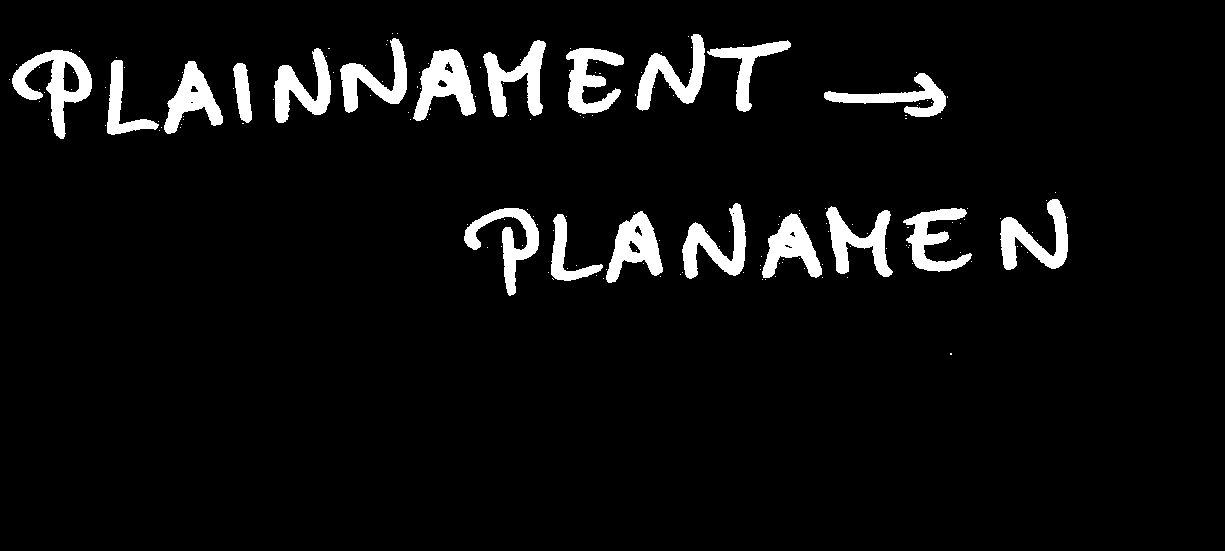 PLAINNAMENT →
PLANAMEN